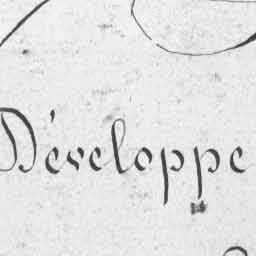 Développe